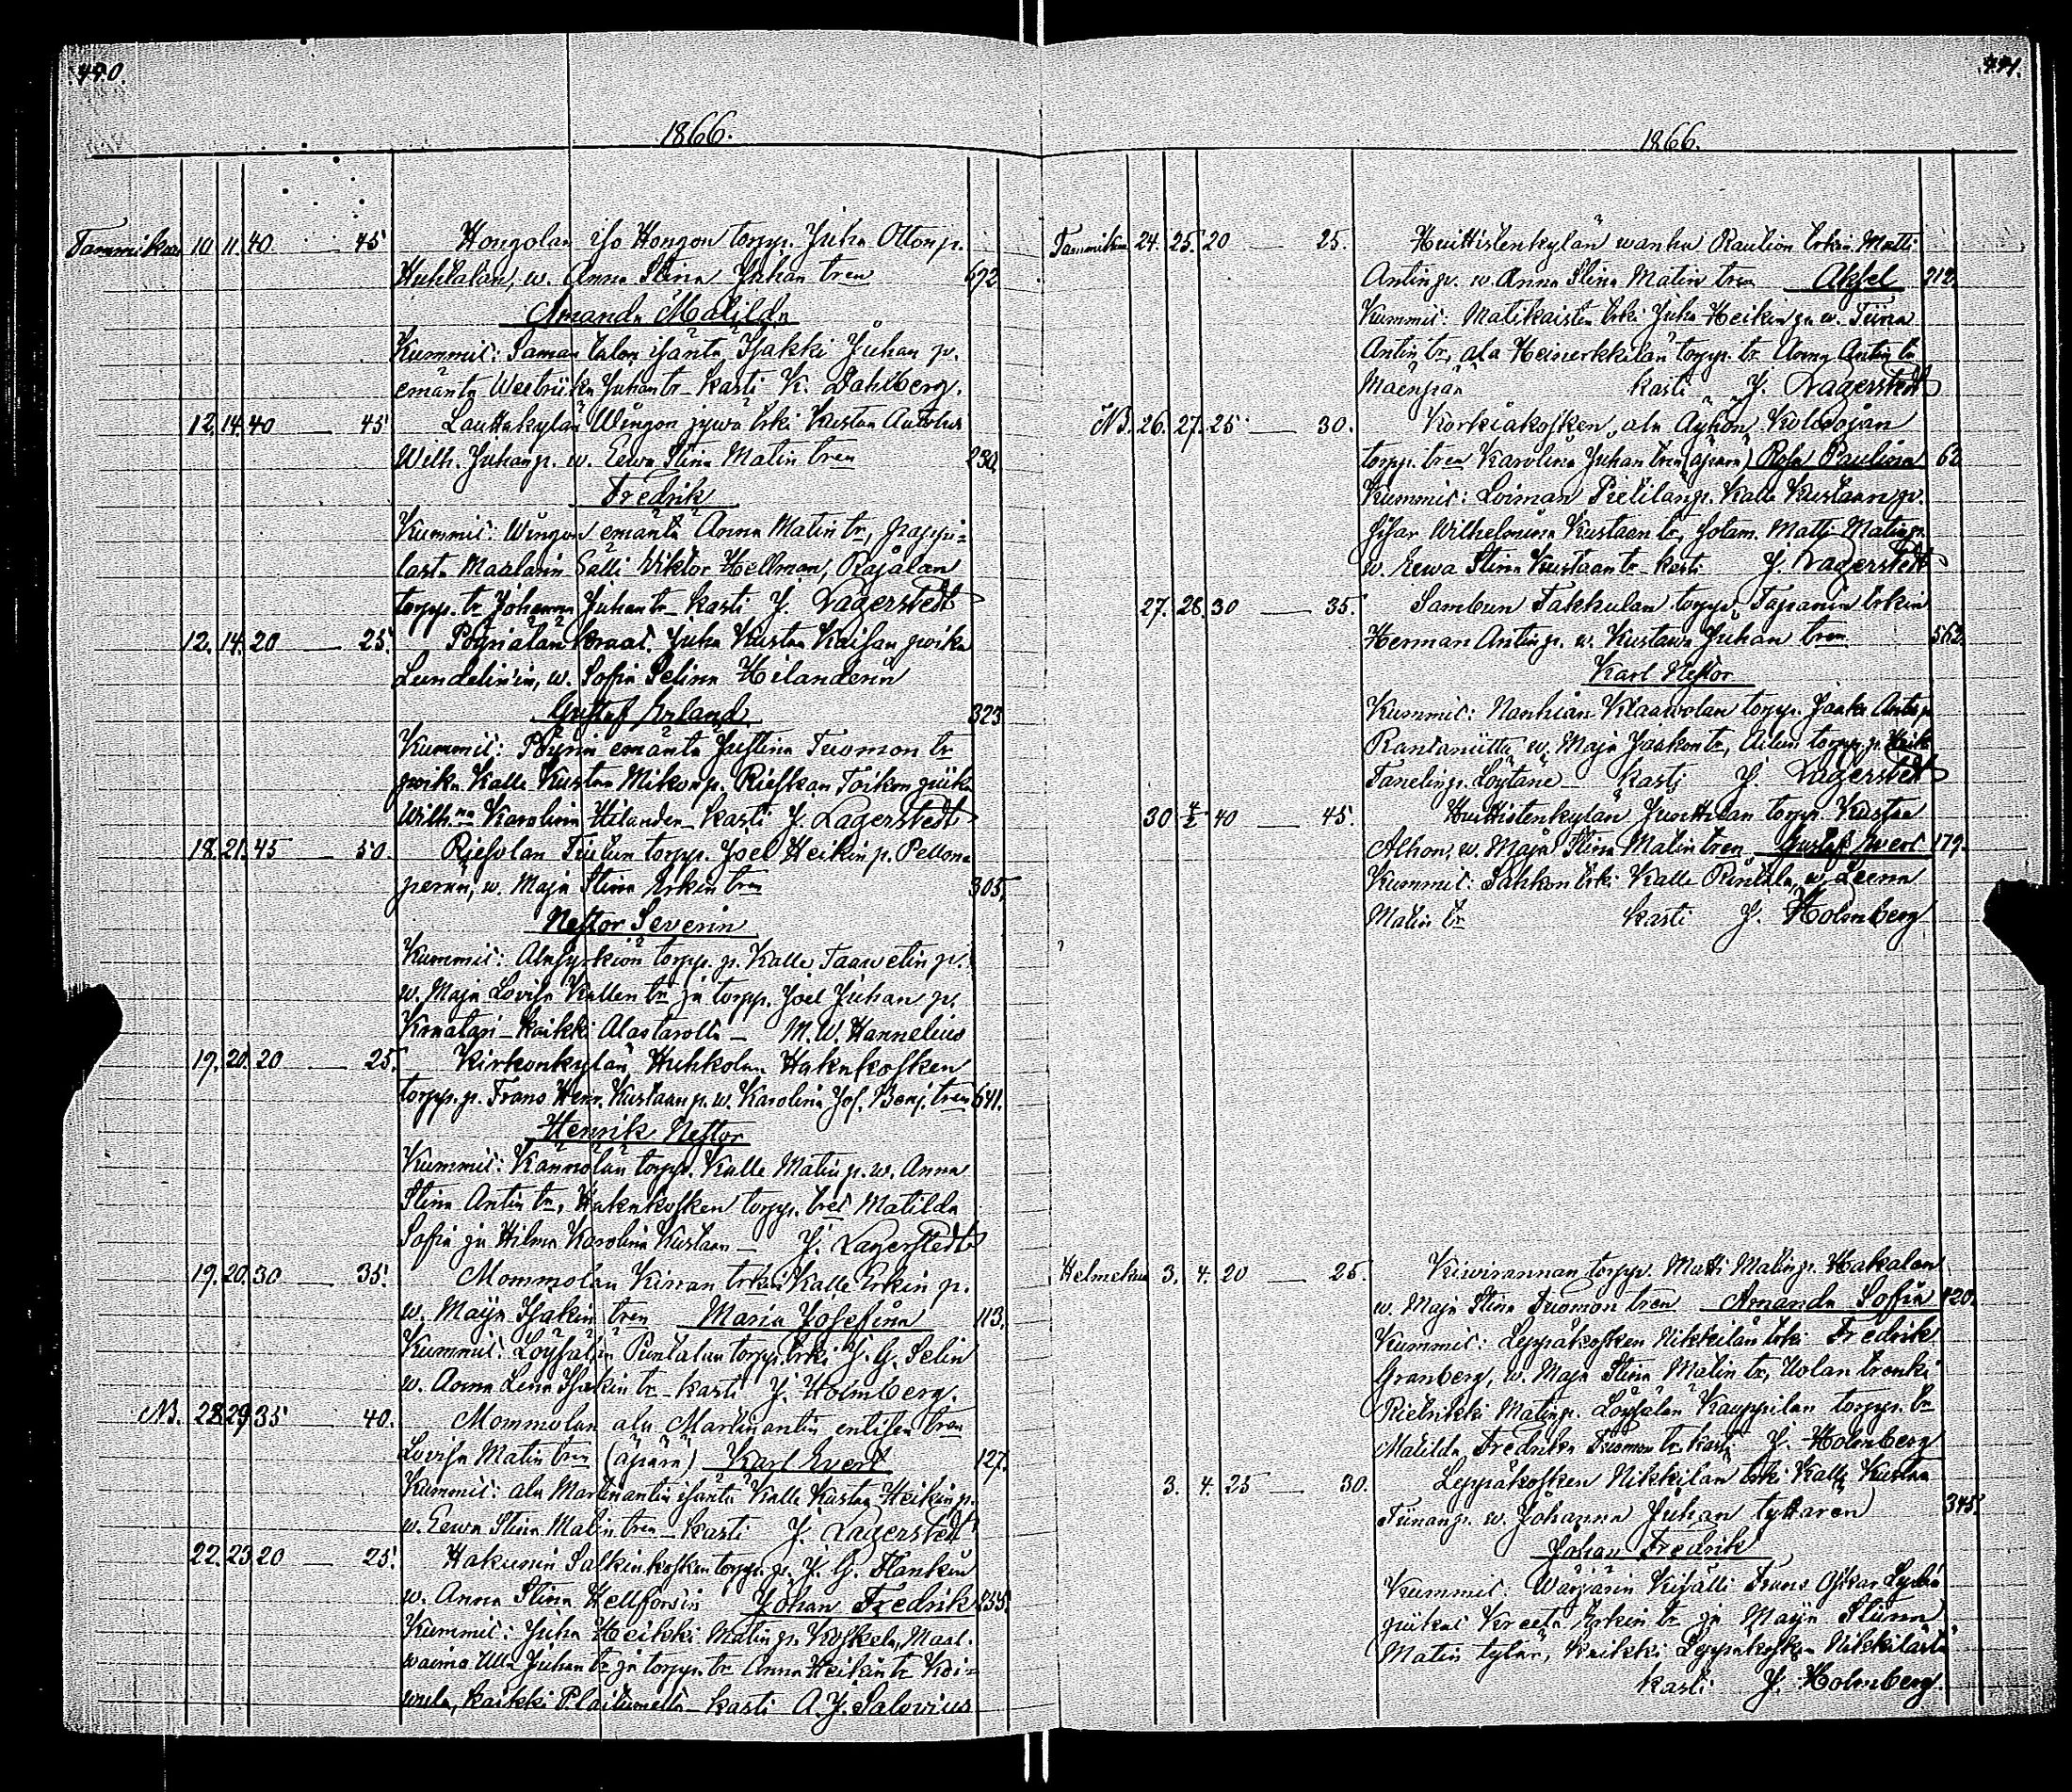 440.
1866.
Tammikuu 10. 11. 40 — 45 Hongolan iso Hongon torpp. Juha Otton p.
Huhtalan, w. Anna Stina Juhan tren 672
Amanda Matilda
Kummit: Saman talon isäntä Isakki Juhan p.
emäntä Juhan tr kasti K. Dahlberg.
12. 14. 40 — 45 Lauttakylän Wingon Kustaa
Wilh. Juhan p. w. Eewa Stina Matin tren 230
Fredrik
Kummit: Wingon emäntä Anna Matin tr, pappi=
lasta Maalarin Sälli Wiktor Hellman,
torpp. tr Johanna Juhan tr kasti J. Lagerstedt
12. 14. 20 — 25. Juha Kustaa
Lundelinin, w. Sofia Selina Hilanderin
Gustaf Erland 323
Kummit: emäntä Justina Tuomon tr
Kalle Kustaa Mikon p.
Wilh:na Karolina Hilander kasti J. Lagerstedt
18. 21. 45 — 50. torpp. Joel Heikin p. Pellon
perän, w. Maja Stina Erkin tren 305.
Nestor Severin
Kummit: torpp. p. Kalle Taawetin p.
w. Maja Lovisa Kallen tr ja torpp. Joel Juhan p.
kaikki Alastarolta — M. W. Hannelius
19. 20. 20 — 25. Kirkonkylän Huhkolan Hakakosken
torpp. p. Frans Henr. Kustaan p. w. Karolina Jos. Benj. tren 641.
Henrik Nestor
Kummit: Kännölän torpp. Kalle Matin p. w. Anna
Stina Antin tr, Hakakosken torpp. tret Matilda
Sofia ja Hilma Karolina Kustaan — J. Lagerstedt
19. 20. 30 — 35. Mommolan Kirran Kalle Erkin p.
w. Maja Isakin tren Maria Josefina 113.
Kummit: Löysälän Puntalan torpp. J. G. Selin
w. Anna Lena Isakin tr kasti J. Holmberg.
NB. 28. 29. 35 — 40. Mommolan ala Martinantin entisen tren
Lovisa Matin tren (äpärä) Karl Evert 127.
Kummit: ala Martinantin isäntä Kalle Kustaa Heikin p.
w. Eewa Stina Matin tren kasti J. Lagerstedt
22. 23. 20 — 25. Hakunin Salkinkosken torpp. p. J. G.
w. Anna Stina Hellforsin Johan Fredrik
Kummit: Juha Heikki Matin p. Koskela, Maal.
waimo Ulla Juhan tr ja torpp. tr Anna Heikin tr Koi=
wula, kaikki kasti A. J. Salovius
441.
1866.
Tammikuu 24. 25. 20 — 25. Huittistenkylän wanha Raution Matti
Antin p. w. Anna Stina Matin tren Aksel 212.
Kummit: Juha Heikin p. w. Tiina
Antin tr, ala torpp. tr Anna Antin tr
Mäenpää kasti J. Lagerstedt
NB. 26. 27. 25 — 30. Korkiakosken, ala Äyhön
torpp. tren Karolina Juhan tren (äpärä) Rosa Paulina 62
Kummit: Loiman Kalle Kustaan p.
sisar Wilhelmina Kustaan tr, Matti Matin p.
w. Eewa Stina Kustaan tr kasti J. Lagerstedt
27. 28. 30 — 35. Sambun Takkulan torpp. Tapanin
Herman Antin p. w. Kustawa Juhan tren 562.
Karl Nestor
Kummit: Nanhian torpp. Jaakko Antin p.
Rantaniittu w. Maja Jaakon tr, torpp. p. Heikki
Tanelin p. Löytäne — kasti J. Lagerstedt
30. 4/2. 40 — 45. Huittistenkylän torpp. Kustaa
Alhon, w. Maja Stina Matin tren Gustaf Evert 179.
Kummit: Kalle Rintala, w. Leena
Matin tr kasti J. Holmberg
Helmekuu 3. 4. 20 — 25. Kiwirannan torpp. Matti Matin p. Hakalan
w. Maja Stina Tuomon tren Amanda Sofia 120.
Kummit: Leppäkosken Nikkilän Fredrik
Granberg, w. Maja Stina Matin tr, Uolan trenki
Matin p. Löysälän Kauppilan torpp. tr
Matilda Fredrika Tuomon tr kasti J. Holmberg
3. 4. 25 — 30. Leppäkosken Nikkilän Kalle Kustaa
w. Johanna Juhan tyttären 345.
Johan Fredrik
Kummit: Frans Oskar
piikat Kreeta Erkin tr ja Maja Stiina
Matin tytär, kaikki Leppäkosken Nikkilästä
kasti J. Holmberg.